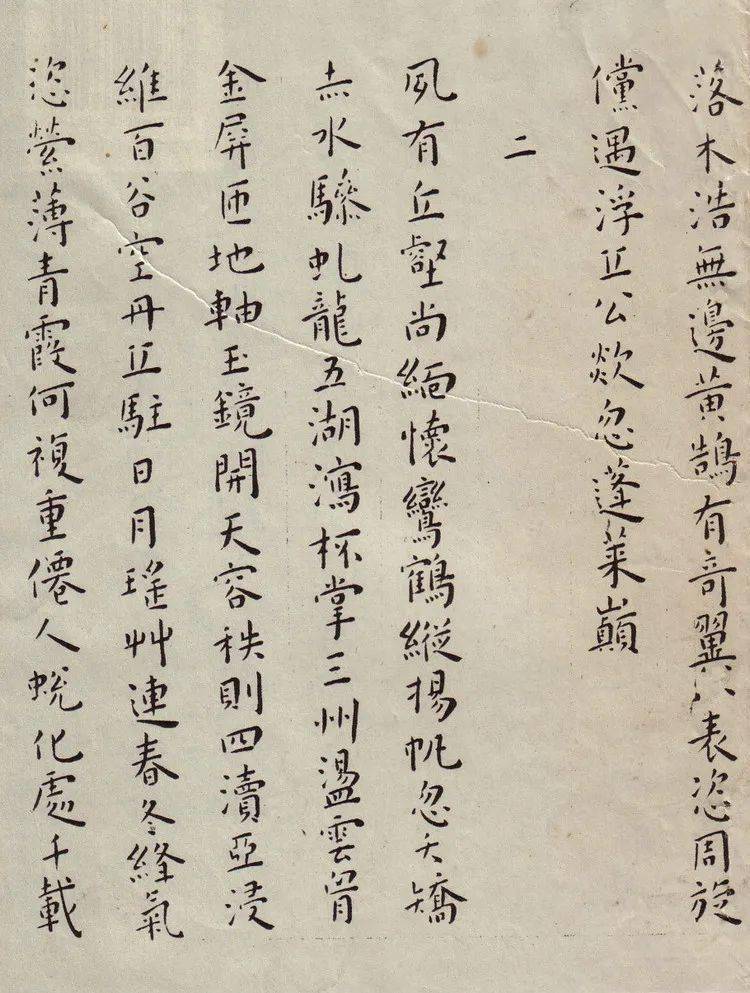 落木浩無邊黃鵠有奇翼八表恣周旋
儻遇浮丘公欻忽蓬萊巔
二
夙有丘壑尚緬懷鸞鶴縱揚帆忽夭矯
赤水驂虬龍五湖瀉杯掌三州盪雲胷
金屏匝地軸玉鏡開天容秩則四瀆亞浸
維百谷空丹丘駐日月瑤艸連春冬絳氣
恣縈薄青霞何複重僊人蛻化處千載